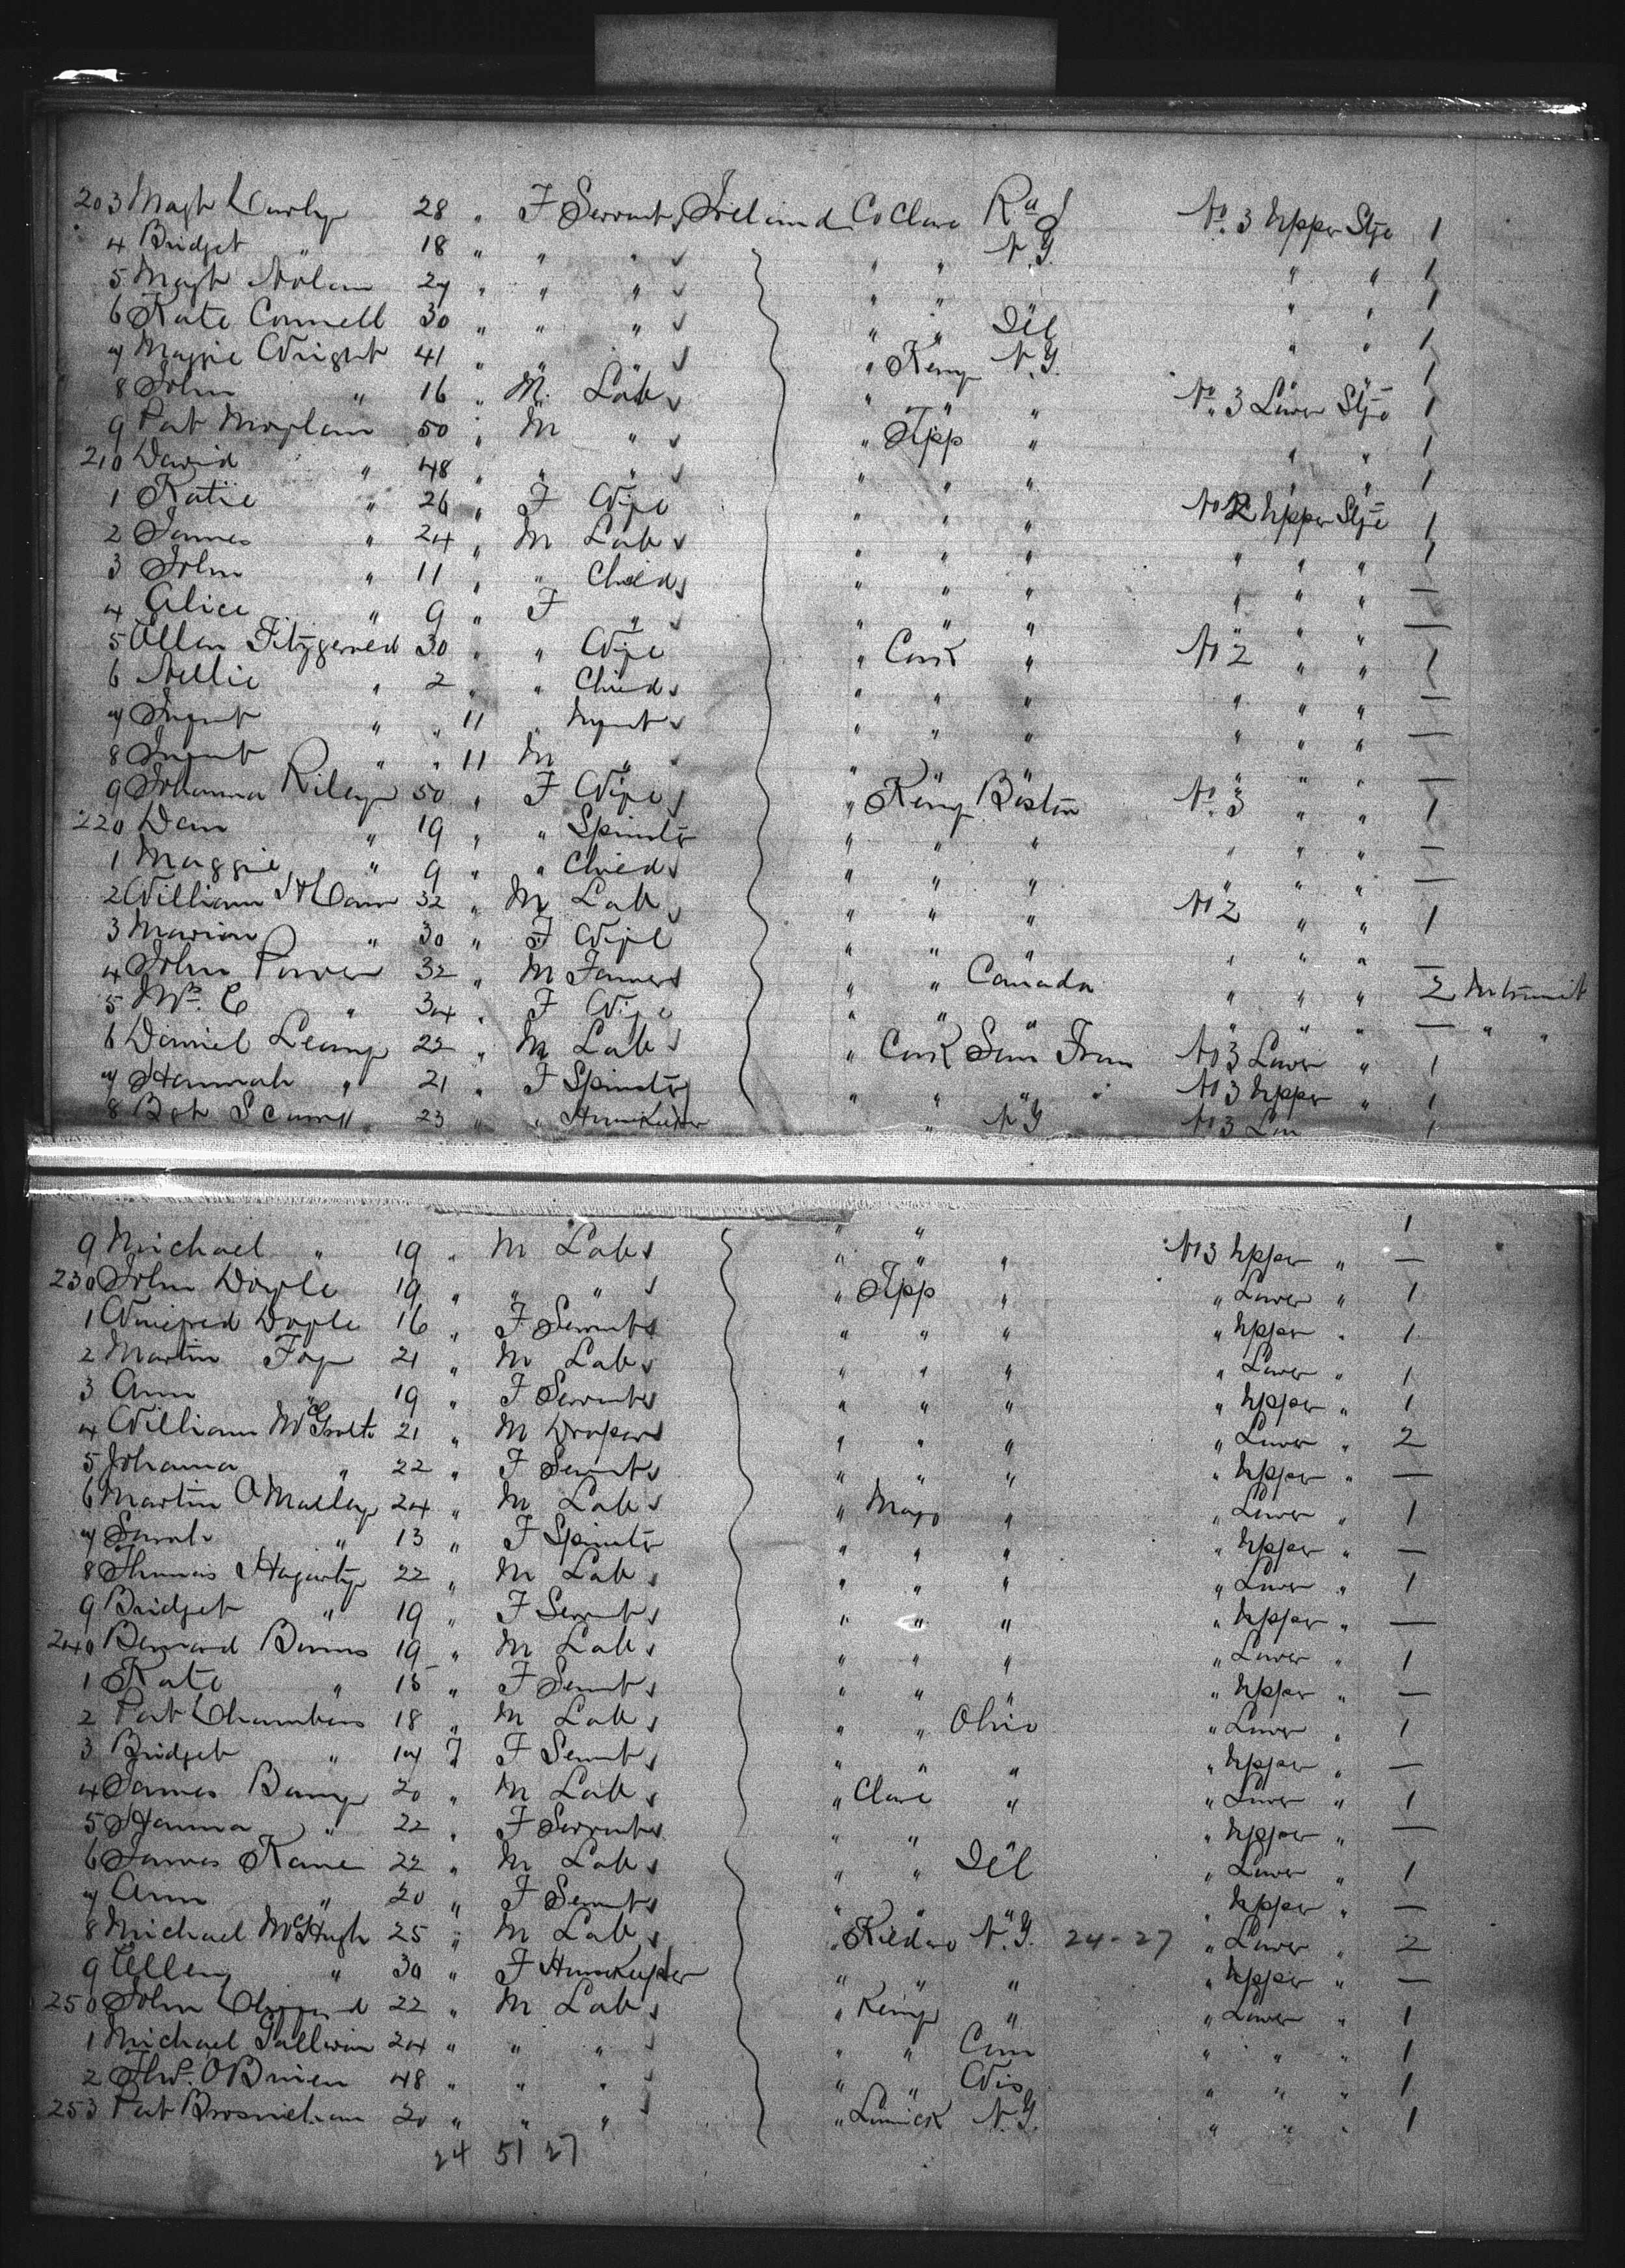 203 Magt Curly 28 " F Servant Ireland Co Clare R.I. No. 3 Upper Stge 1
4 Bridget " 18 " " " " " N.Y. " " 1
5 Magt Nolan 27 " " " " " " " 1
6 Kate Connell 30 " " " " " Ill " " 1
7 Maggie Wright 41 " " " " Kerry N.Y. " " 1
8 John " 16 " M. Lab " " " No 3 Lower Stge 1
9 Pat 50 " M " " Tipp " " " 1
210 David " 48 " " " " " " " " 1
1 Katie " 26 " F Wife " " " No 2 Upper Stge 1
2 James " 24 " M Lab " " " " " " 1
3 John " 11 " " Child " " " " " " —
4 Alice " 9 " F " " " " " " " —
5 Ellen Fitzgerald 30 " " Wife " Cork " No 2 " " 1
6 Nellie " 2 " " Child " " " " " " —
7 Infant " " 11 " Infant " " " " " " —
8 Infant " " 11 M " " " " " " " —
9 Johanna Riley 50 " F Wife " Kerry Boston No. 3 " " 1
220 Dan " 19 " " Spinster " " " " " " —
1 Maggie " 9 " " Child " " " " " " —
2 William 32 " M Lab " " " No 2 " " 1
3 Marion " 30 " F Wife " " " " " " —
4 John Power 32 " M Farmer " " Canada " " " 2 Intransit
5 Mrs. C " 34 " F Wife " " " " " " — " "
6 Daniel Leamy 22 " M Lab " Cork San Fran No 3 Lower " 1
7 Hannah " 21 " F Spinster " " " No 3 Upper " 1
8 23 " " Housekeeper " N Y No 3 1
9 Michael " 19 " M Lab " " " No 3 Upper " —
230 John Doyle 19 " " " " Tipp " " Lower " 1
1 Winifred Doyle 16 " F Servant " " " " Upper " 1
2 Martin Foy 21 " M Lab " " " " Lower " 1
3 Ann " 19 " F Servant " " " " Upper " 1
4 William 21 " M Draper " " " " Lower " 2
5 Johanna " 22 " F Servant " " " " Upper " —
6 Martin O'Malley 24 " M Lab " Mayo " " Lower " 1
7 Sarah " 13 " F Spinster " " " " Upper " —
8 Thomas Hagarty 22 " M Lab " " " " Lower " 1
9 Bridget " 19 " F Servant " " " " Upper " —
240 Bernard Burns 19 " M Lab " " " " Lower " 1
1 Kate " 15 " F Servant " " " " Upper " —
2 Pat Chambers 18 " M Lab " " Ohio " Lower " 1
3 Bridget " 17 F Servant " " " " Upper " —
4 James 20 " M Lab " Clare " " Lower " 1
5 Hanna " 22 " F Servant " " " " Upper " —
6 James Kane 22 " M Lab " " Ill " Lower " 1
7 Ann " 20 " F Servant " " " " Upper " —
8 Michael McHugh 25 " M Lab " Kildare N.Y. 24-27 " Lower " 2
9 Ellen " 30 " F Housekeeper " " " " Upper " —
250 John 22 " M Lab " Kerry " " Lower " 1
1 Michael Sullivan 24 " " " " " Conn " " " 1
2 Thos. O'Brien 48 " " " " " Wis " " " 1
253 Pat Brosnehan 20 " " " " Limrick N.Y. " " " 1
24 51 27